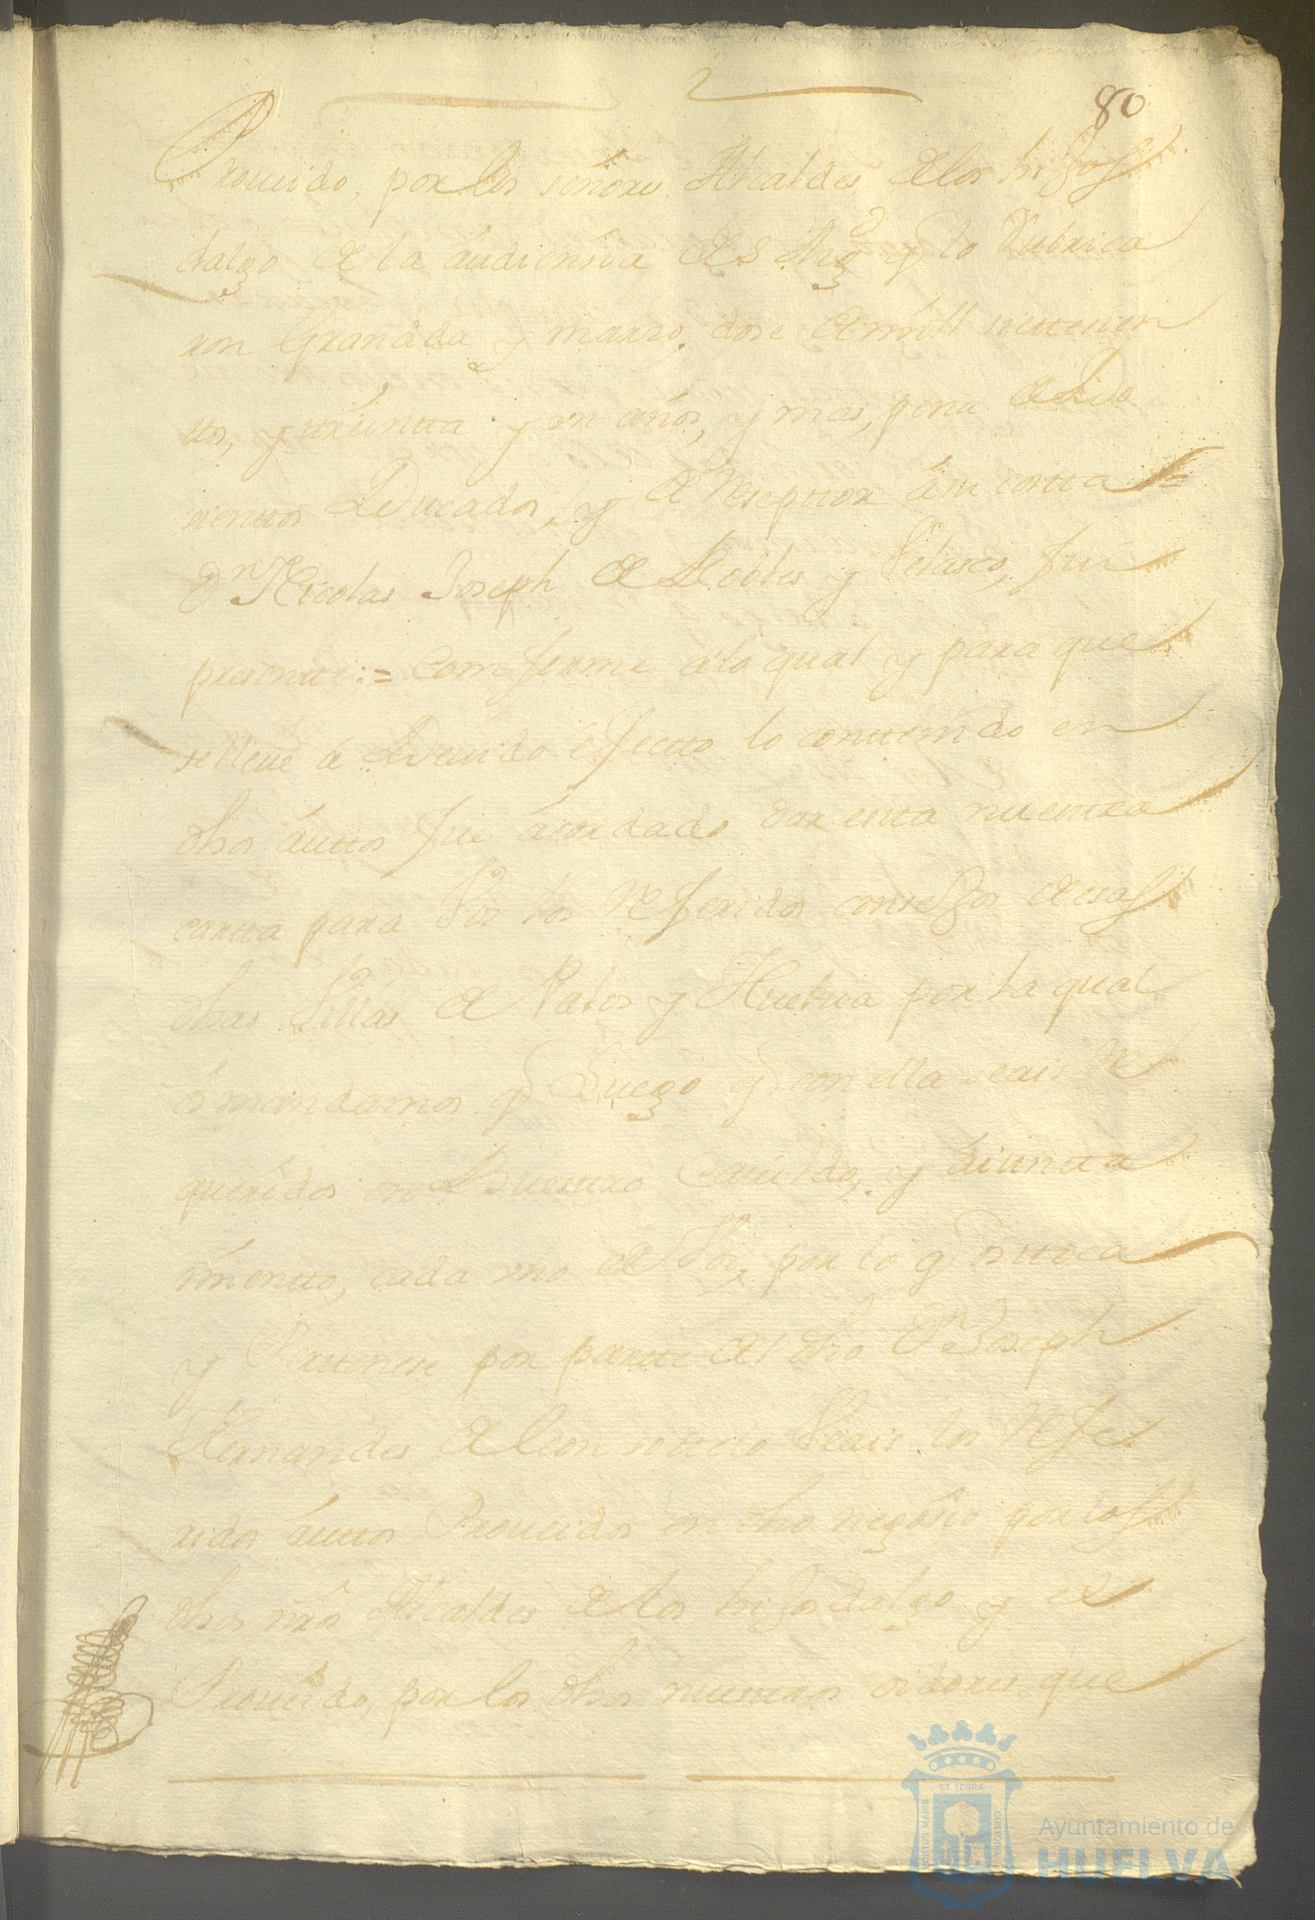 80
Proueido, por los señores Alcaldes de los hijos
dalgo de la áudiensia de S. Mgd y lo Rubrica
ron Granada y marzo, dose de mill settesien
tos, y treintta y un años, y mas, pena de Do
sientos Ducados, y de Reseptror ám costta =
Dn. Nicolas Joseph de Robles y Velasco, fui
presentte; = Comforme álo qual y para que
se lleue á Deuido effectto lo conttenido en
dhos áuttos fue ácordado dar estta nuestra
cartta para Vos los Referidos consejos de esas
dhas Villas de Palos y Huelua por la qual
os mandamos q Luego q con ella seais Re
queridos en Buestro Cauildo, y áiuntta
mientto, cada uno de Vos, por lo q os ttoca
y Perttenese por partte del dho Dn. Joseph
Hernandes de leon sottelo Veais los Refe
ridos áuttos Proueidos en dho negósio por los
dhos nros Alcaldes de los hijosdalgo y el
Proueido, por los dhos nuestros oidores que
ET TERRÆ
PORTUS MARIS
CUSTODIA
Ayuntamiento de
HUELVA